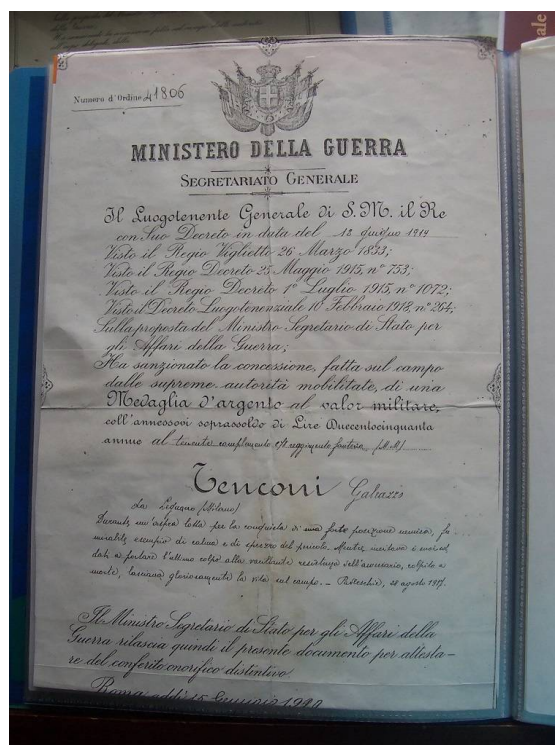 Numero d'Ordine 41806
MINISTERO DELLA GUERRA
SEGRETARIATO GENERALE
Il Luogotenente Generale di S. M. il Re
con Suo Decreto in data del 12 giugno 1919
Visto il Regio Viglietto 26 Marzo 1833;
Visto il Regio Decreto 23 Maggio 1915, n° 753;
Visto il Regio Decreto 1° Luglio 1915, n° 1072;
Visto il Decreto Luogotenenziale 10 Febbraio 1918, n° 264;
Sulla proposta del Ministro Segretario di Stato per
gli Affari della Guerra;
Ha sanzionato la concessione, fatta sul campo
dalle supreme autorità mobilitate, di una
Medaglia d'argento al valor militare,
coll'annessovi soprassoldo di Lire Duecentocinquanta
annue al tenente complemento reggimento fanteria (M.M.)
Tenconi Galeazzo
da Legnano (Milano)
Durante un'aspra lotta per la conquista di una forte posizione nemica, fu
mirabile esempio di calma e di sprezzo del pericolo. Mentre incitava i suoi sol
dati a portare l'ultimo colpo alla resistenza dell'avversario, colpito a
morte, lasciava gloriosamente la vita sul campo. - 28 agosto 1917.
Il Ministro Segretario di Stato per gli Affari della
Guerra rilascia quindi il presente documento per attesta-
re del conferito onorifico distintivo.
Roma, addì 15 Gennaio
ale